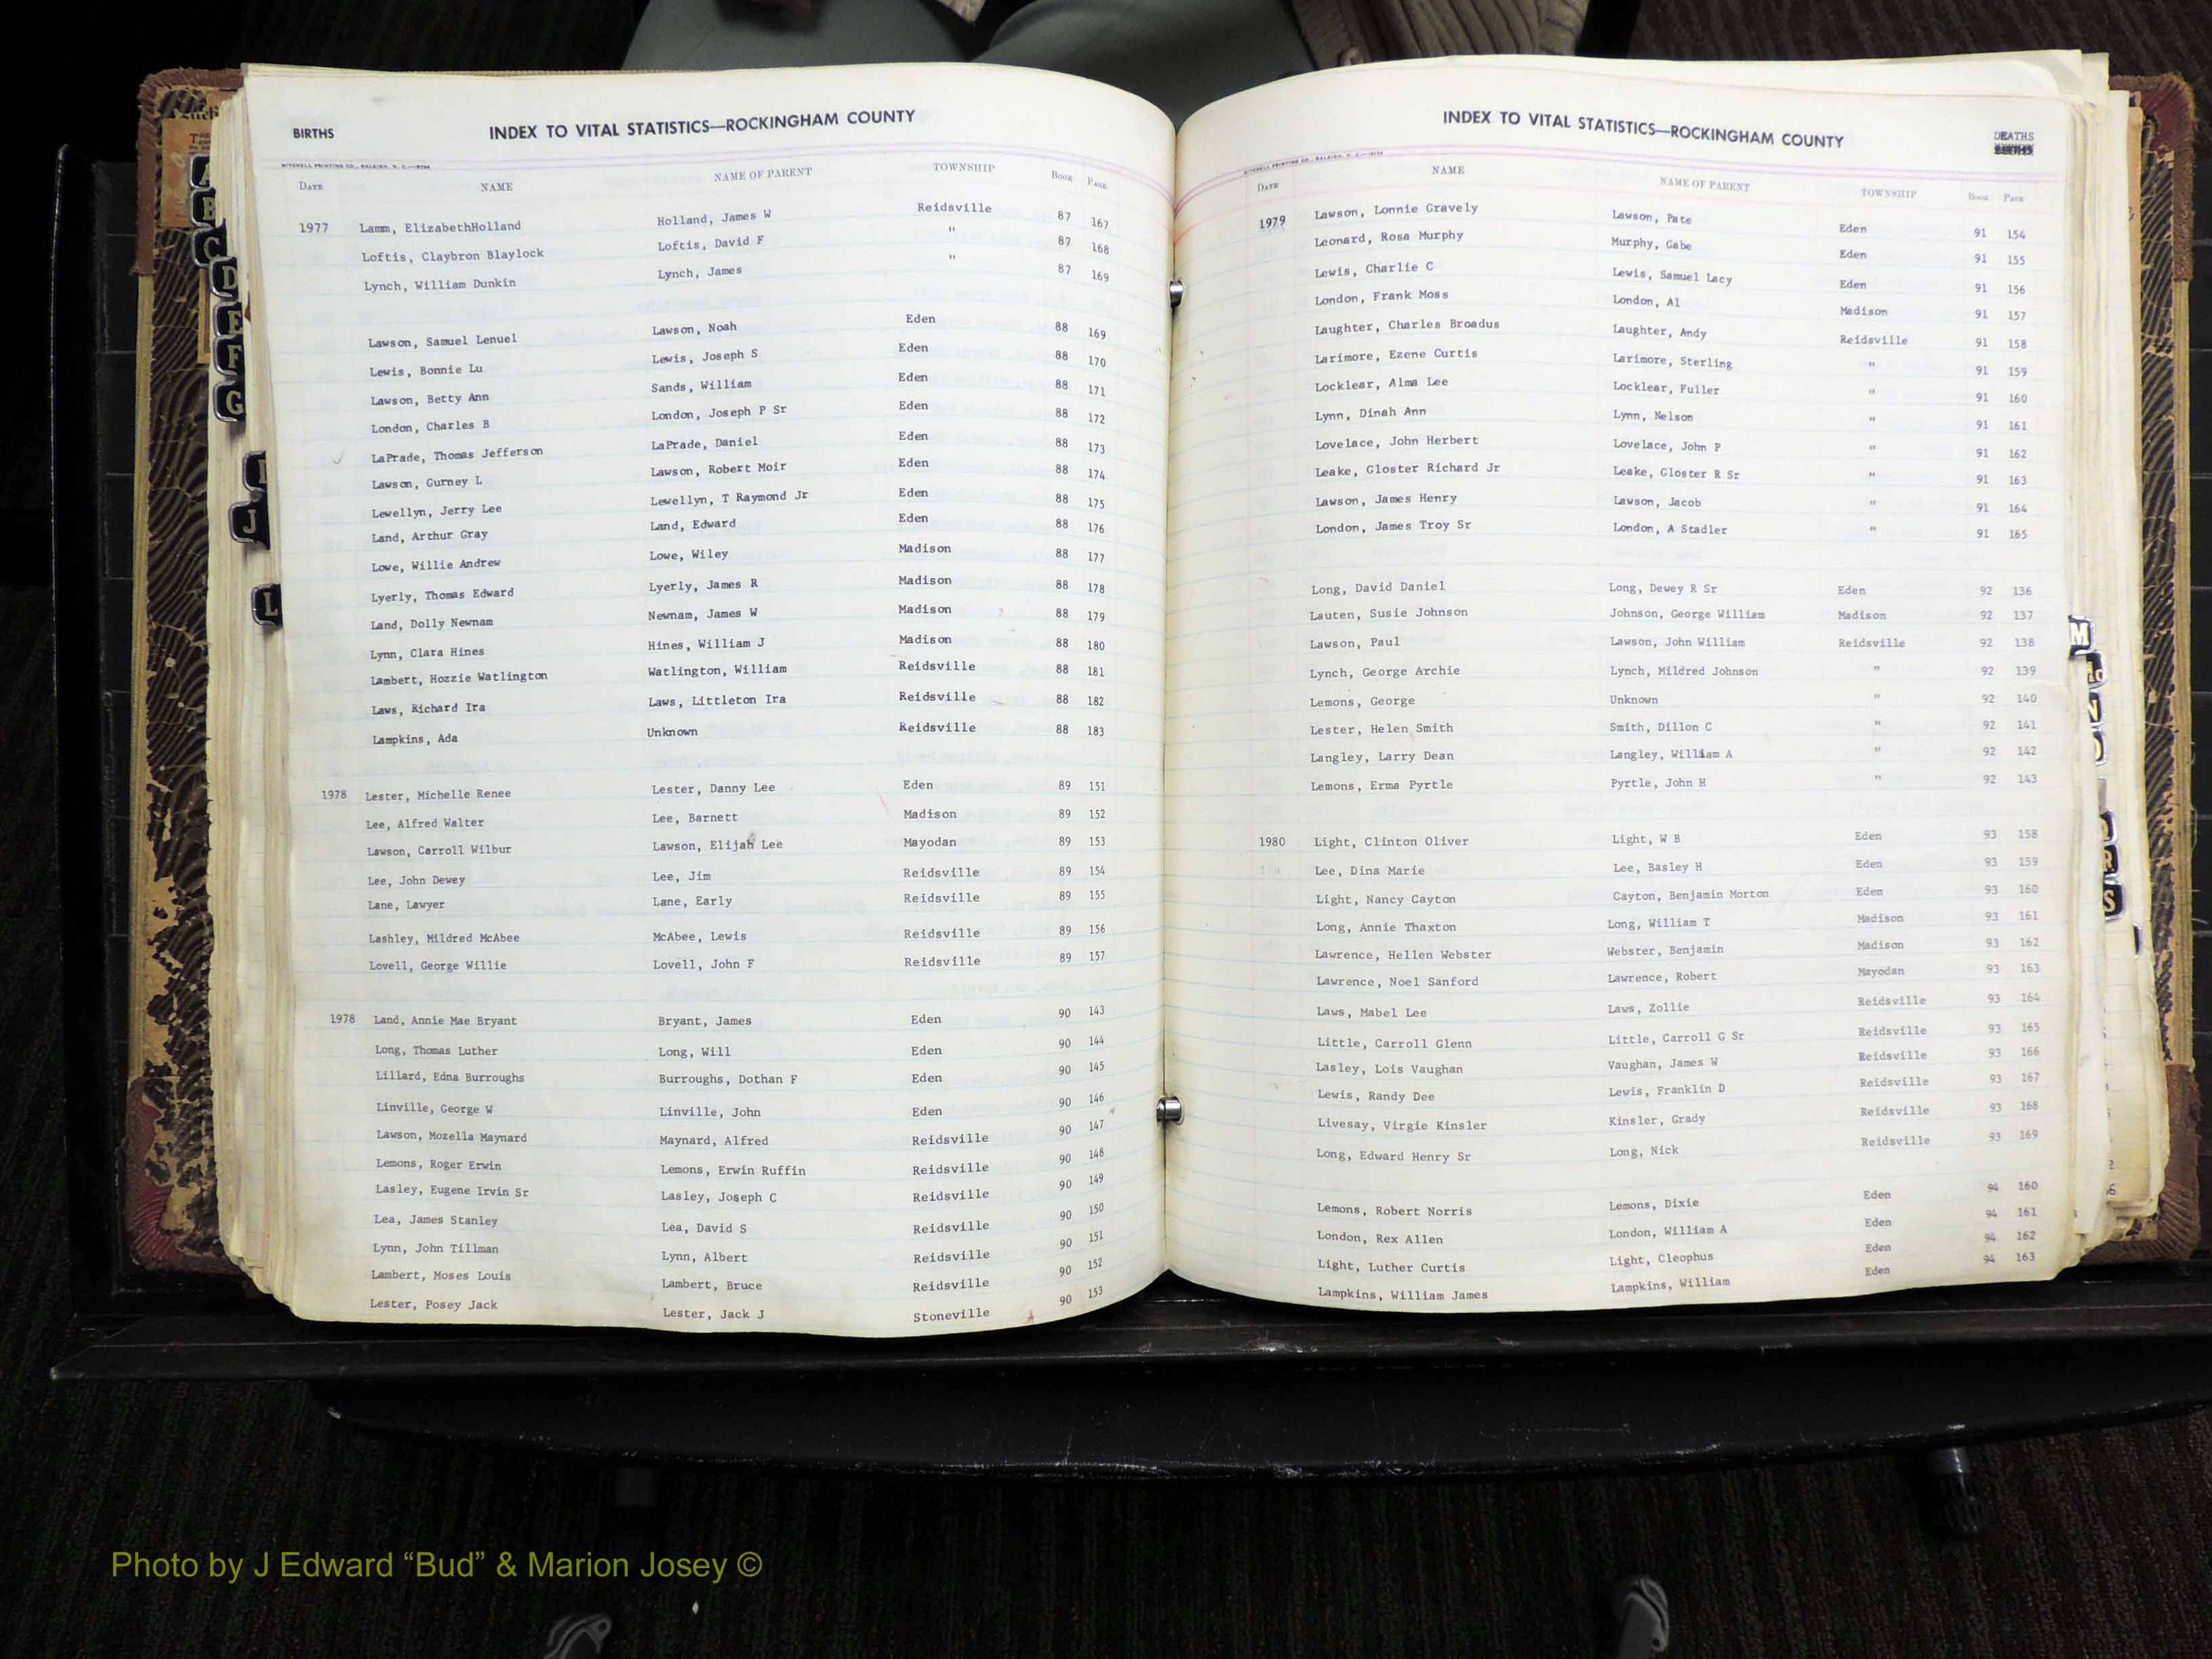 BIRTHS INDEX TO VITAL STATISTICS—ROCKINGHAM COUNTY
MITCHELL PRINTING CO., RALEIGH, N. C.
DATE NAME NAME OF PARENT TOWNSHIP BOOK PAGE
1977 Lamm, ElizabethHolland Holland, James W Reidsville 87 167
Loftis, Claybron Blaylock Loftis, David F " 87 168
Lynch, William Dunkin Lynch, James " 87 169
Lawson, Samuel Lenuel Lawson, Noah Eden 88 169
Lewis, Bonnie Lu Lewis, Joseph S Eden 88 170
Lawson, Betty Ann Sands, William Eden 88 171
London, Charles B London, Joseph P Sr Eden 88 172
LaPrade, Thomas Jefferson LaPrade, Daniel Eden 88 173
Lawson, Gurney L Lawson, Robert Moir Eden 88 174
Lewellyn, Jerry Lee Lewellyn, T Raymond Jr Eden 88 175
Land, Arthur Gray Land, Edward Eden 88 176
Lowe, Willie Andrew Lowe, Wiley Madison 88 177
Lyerly, Thomas Edward Lyerly, James R Madison 88 178
Land, Dolly Newnam Newnam, James W Madison 88 179
Lynn, Clara Hines Hines, William J Madison 88 180
Lambert, Hozzie Watlington Watlington, William Reidsville 88 181
Laws, Richard Ira Laws, Littleton Ira Reidsville 88 182
Lampkins, Ada Unknown Reidsville 88 183
1978 Lester, Michelle Renee Lester, Danny Lee Eden 89 151
Lee, Alfred Walter Lee, Barnett Madison 89 152
Lawson, Carroll Wilbur Lawson, Elijah Lee Mayodan 89 153
Lee, John Dewey Lee, Jim Reidsville 89 154
Lane, Lawyer Lane, Early Reidsville 89 155
Lashley, Mildred McAbee McAbee, Lewis Reidsville 89 156
Lovell, George Willie Lovell, John F Reidsville 89 157
1978 Land, Annie Mae Bryant Bryant, James Eden 90 143
Long, Thomas Luther Long, Will Eden 90 144
Lillard, Edna Burroughs Burroughs, Dothan F Eden 90 145
Linville, George W Linville, John Eden 90 146
Lawson, Mozella Maynard Maynard, Alfred Reidsville 90 147
Lemons, Roger Erwin Lemons, Erwin Ruffin Reidsville 90 148
Lasley, Eugene Irvin Sr Lasley, Joseph C Reidsville 90 149
Lea, James Stanley Lea, David S Reidsville 90 150
Lynn, John Tillman Lynn, Albert Reidsville 90 151
Lambert, Moses Louis Lambert, Bruce Reidsville 90 152
Lester, Posey Jack Lester, Jack J Stoneville 90 153
INDEX TO VITAL STATISTICS—ROCKINGHAM COUNTY DEATHS
MITCHELL PRINTING CO., RALEIGH, N. C.
DATE NAME NAME OF PARENT TOWNSHIP BOOK PAGE
1979 Lawson, Lonnie Gravely Lawson, Pate Eden 91 154
Leonard, Rosa Murphy Murphy, Gabe Eden 91 155
Lewis, Charlie C Lewis, Samuel Lacy Eden 91 156
London, Frank Moss London, Al Madison 91 157
Laughter, Charles Broadus Laughter, Andy Reidsville 91 158
Larimore, Ezene Curtis Larimore, Sterling " 91 159
Locklear, Alma Lee Locklear, Fuller " 91 160
Lynn, Dinah Ann Lynn, Nelson " 91 161
Lovelace, John Herbert Lovelace, John P " 91 162
Leake, Gloster Richard Jr Leake, Gloster R Sr " 91 163
Lawson, James Henry Lawson, Jacob " 91 164
London, James Troy Sr London, A Stadler " 91 165
Long, David Daniel Long, Dewey R Sr Eden 92 136
Lauten, Susie Johnson Johnson, George William Madison 92 137
Lawson, Paul Lawson, John William Reidsville 92 138
Lynch, George Archie Lynch, Mildred Johnson " 92 139
Lemons, George Unknown " 92 140
Lester, Helen Smith Smith, Dillon C " 92 141
Langley, Larry Dean Langley, William A " 92 142
Lemons, Erma Pyrtle Pyrtle, John H " 92 143
1980 Light, Clinton Oliver Light, W B Eden 93 158
Lee, Dina Marie Lee, Basley H Eden 93 159
Light, Nancy Cayton Cayton, Benjamin Morton Eden 93 160
Long, Annie Thaxton Long, William T Madison 93 161
Lawrence, Hellen Webster Webster, Benjamin Madison 93 162
Lawrence, Noel Sanford Lawrence, Robert Mayodan 93 163
Laws, Mabel Lee Laws, Zollie Reidsville 93 164
Little, Carroll Glenn Little, Carroll G Sr Reidsville 93 165
Lasley, Lois Vaughan Vaughan, James W Reidsville 93 166
Lewis, Randy Dee Lewis, Franklin D Reidsville 93 167
Livesay, Virgie Kinsler Kinsler, Grady Reidsville 93 168
Long, Edward Henry Sr Long, Nick Reidsville 93 169
Lemons, Robert Norris Lemons, Dixie Eden 94 160
London, Rex Allen London, William A Eden 94 161
Light, Luther Curtis Light, Cleophus Eden 94 162
Lampkins, William James Lampkins, William Eden 94 163
A
B
C
D
E
F
G
J
L
M
N
R
S
Photo by J Edward “Bud” & Marion Josey ©